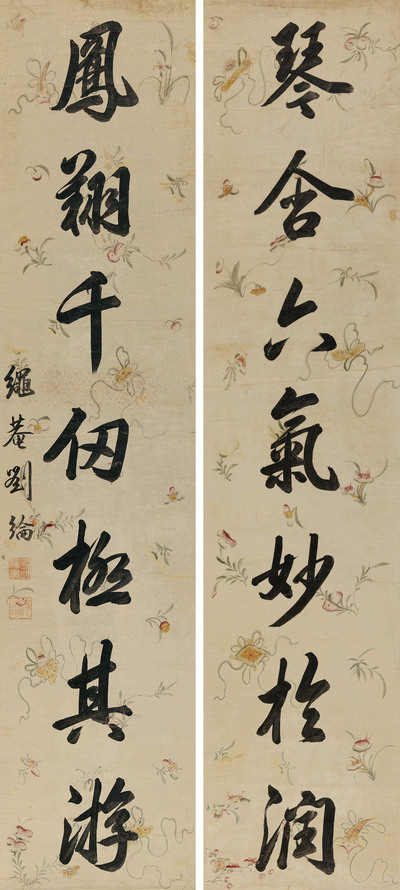 琴含六氣妙於潤
鳳翔千仞極其游
繩菴劉綸